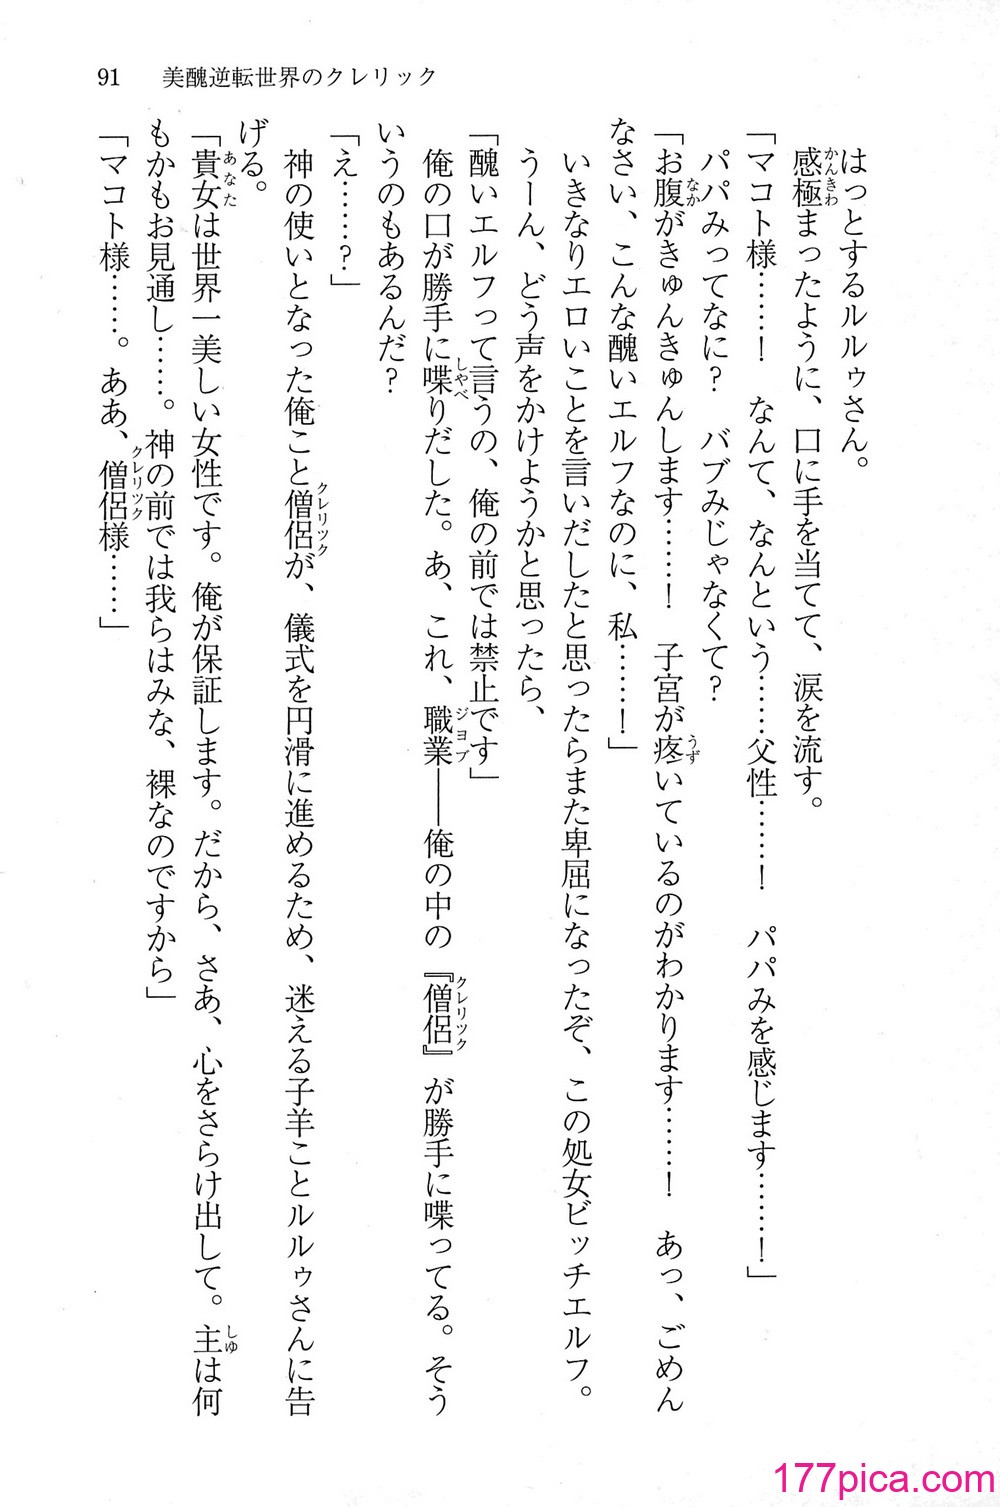 91　美醜逆転世界のクレリック
はっとするルルゥさん。
感極まったように、口に手を当てて、涙を流す。
「マコト様……！　なんて、なんという……父性……！　パパみを感じます……！」
パパみってなに？　バブみじゃなくて？
「お腹がきゅんきゅんします……！　子宮が疼いているのがわかります……！　あっ、ごめん
なさい、こんな醜いエルフなのに、私……！」
いきなりエロいことを言いだしたと思ったらまた卑屈になったぞ、この処女ビッチエルフ。
うーん、どう声をかけようかと思ったら、
「醜いエルフって言うの、俺の前では禁止です」
俺の口が勝手に喋りだした。あ、これ、職業――俺の中の『僧侶』が勝手に喋ってる。そう
いうのもあるんだ？
「え……？」
神の使いとなった俺こと僧侶が、儀式を円滑に進めるため、迷える子羊ことルルゥさんに告
げる。
「貴女は世界一美しい女性です。俺が保証します。だから、さあ、心をさらけ出して。主は何
もかもお見通し……。神の前では我らはみな、裸なのですから」
「マコト様……。ああ、僧侶様……」
177pica.com